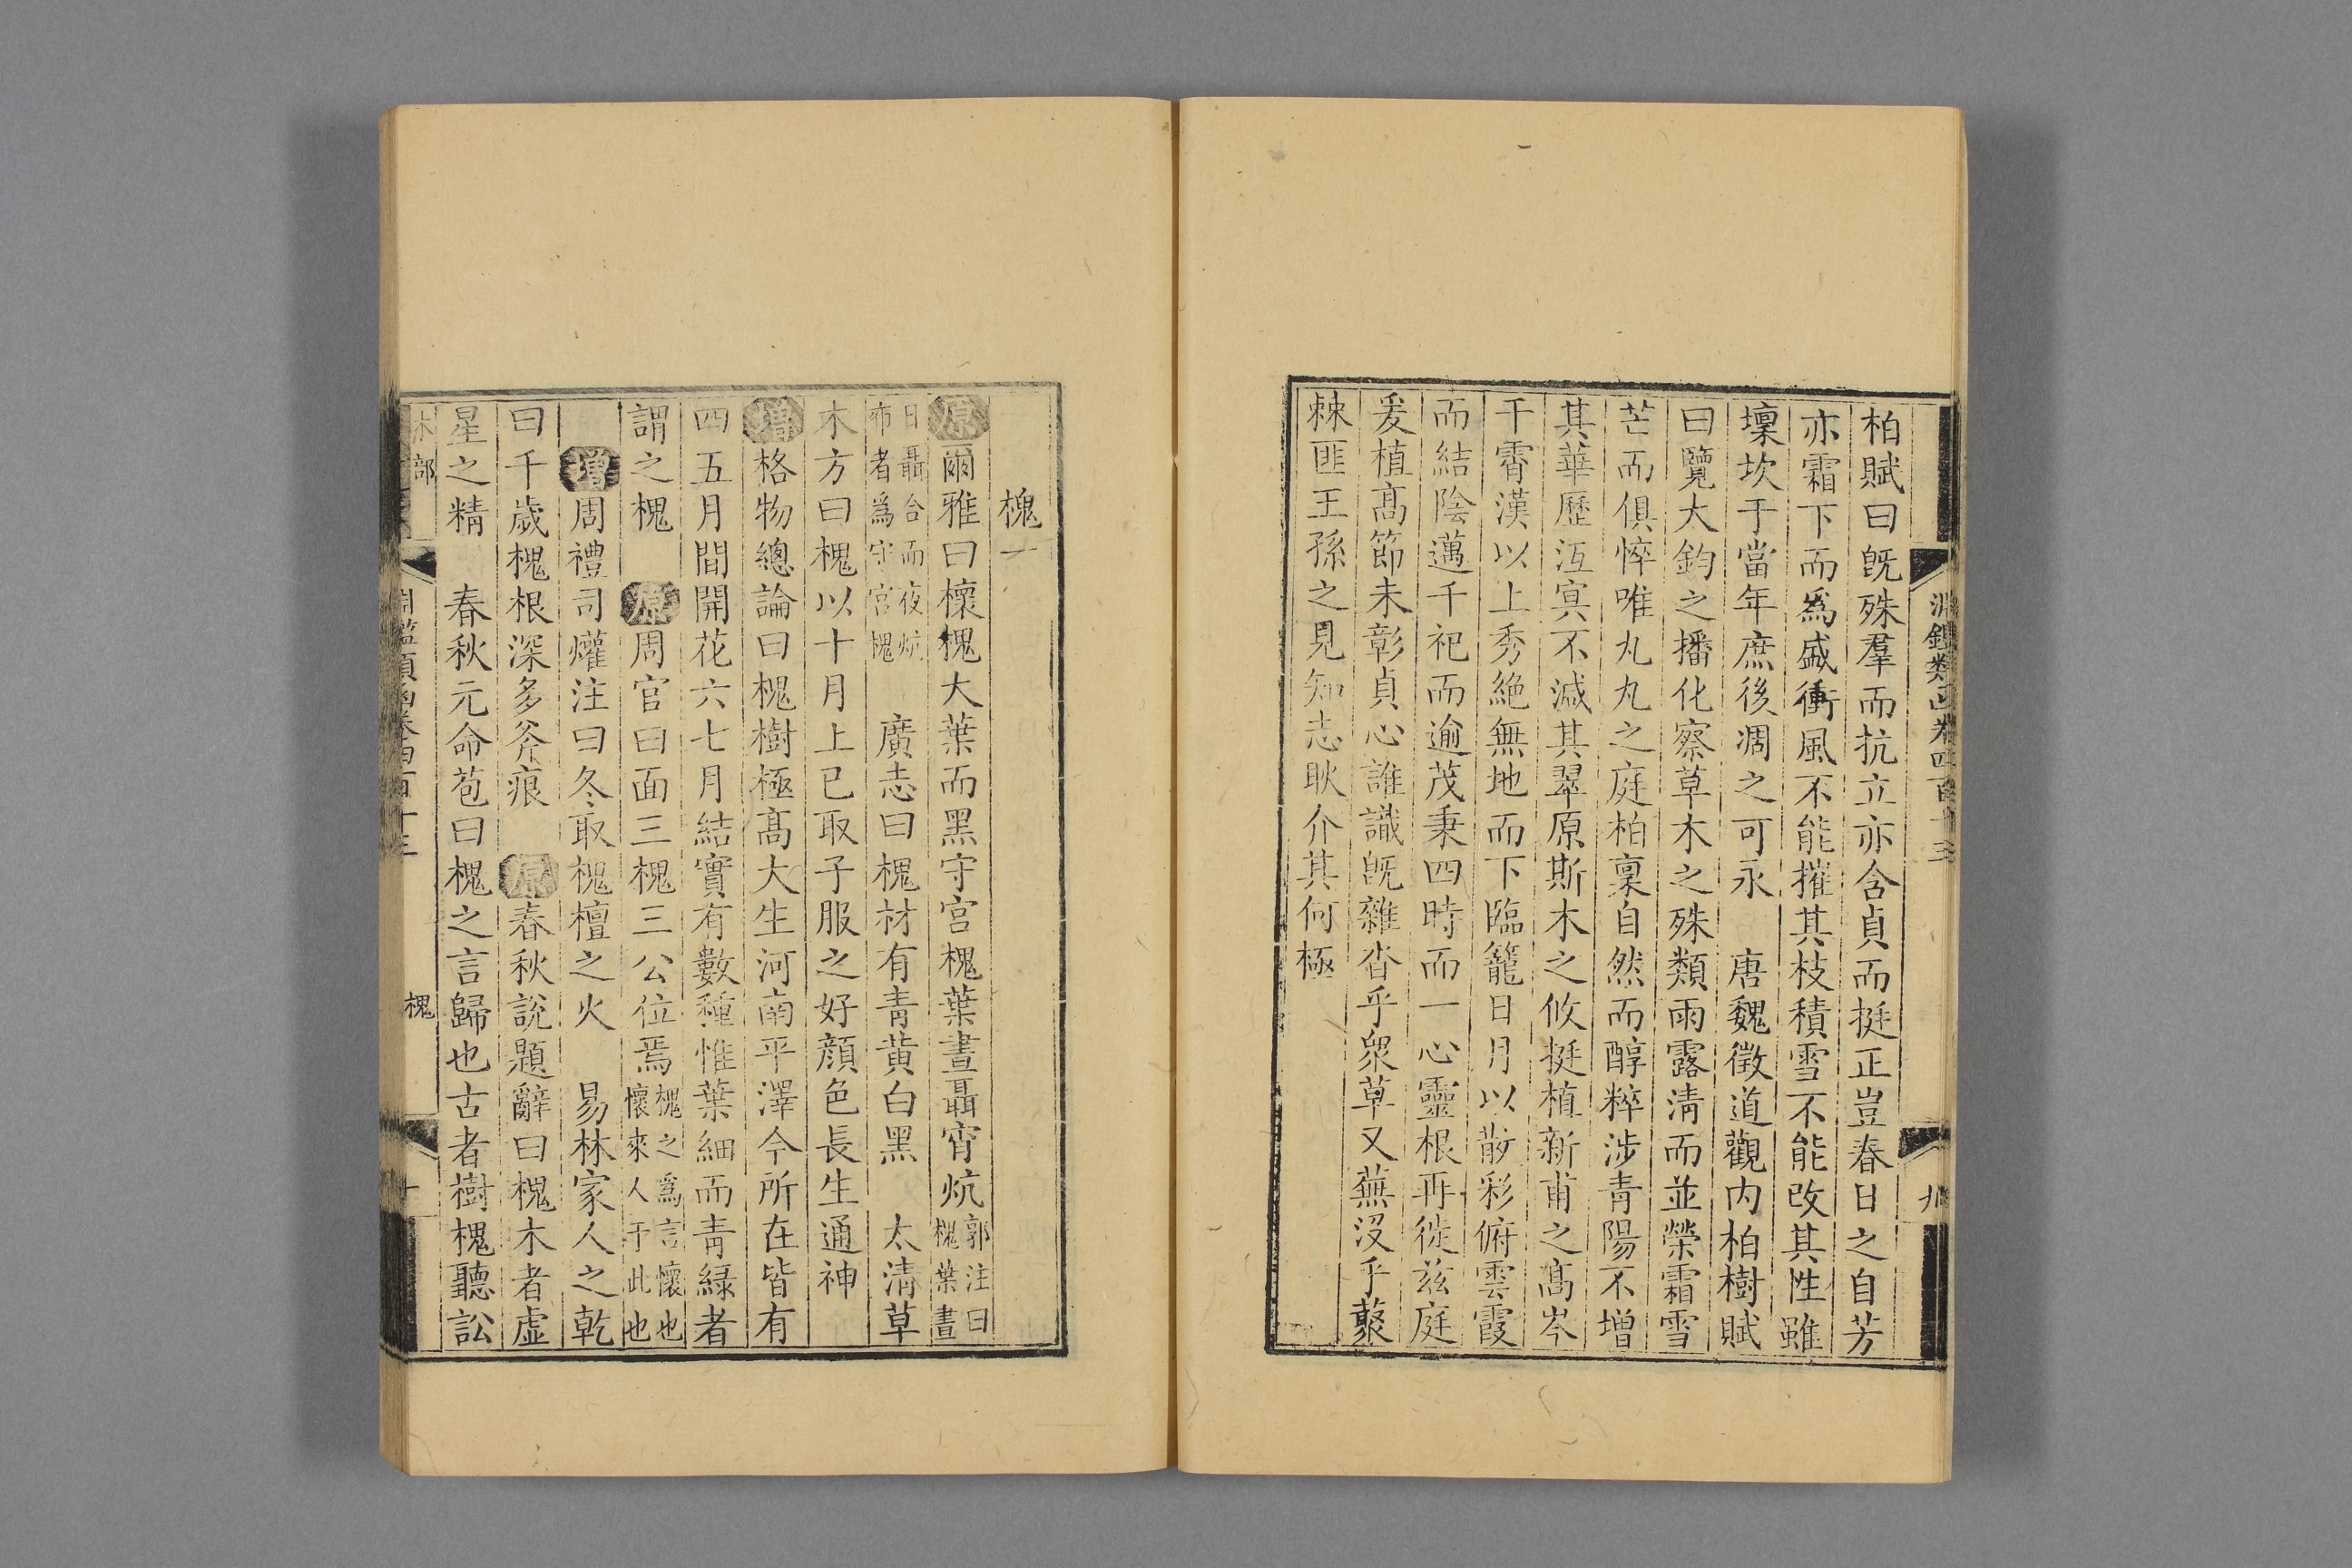 淵鑑類函卷四百十三
九
柏賦曰旣殊羣而抗立亦含貞而挺正豈春日之自芳
亦霜下而爲盛衝風不能摧其枝積雪不能改其性雖
壈坎于當年庶後凋之可永　唐魏徵道觀內柏樹賦
曰覽大鈞之播化察草木之殊類雨露清而並榮霜雪
芒而俱悴唯丸丸之庭柏稟自然而醇粹涉青陽不增
其華歷沍寅不減其翠原斯木之攸挺植新甫之高岑
干霄漢以上秀絶無地而下臨籠日月以散彩俯雲霞
而結陰邁千祀而逾茂秉四時而一心靈根再徙茲庭
爰植高節未彰貞心誰識旣雜沓乎衆草又蕪沒乎藂
棘匪王孫之見知志耿介其何極
槐一
原爾雅曰櫰槐大葉而黑守宮槐葉晝聶宵炕郭注曰槐葉晝
日聶合而夜炕布者爲守宮槐　廣志曰槐材有青黃白黑　太清草
木方曰槐以十月上巳取子服之好顏色長生通神
增格物總論曰槐樹極高大生河南平澤今所在皆有
四五月間開花六七月結實有數種惟葉細而青綠者
謂之槐　原周官曰面三槐三公位焉槐之爲言懷也懷來人于此也
增周禮司爟注曰冬取槐檀之火　易林家人之乾
曰千歲槐根深多斧痕　原春秋說題辭曰槐木者虛
星之精　春秋元命苞曰槐之言歸也古者樹槐聽訟
木部
淵鑑類函卷四百十三
槐
十